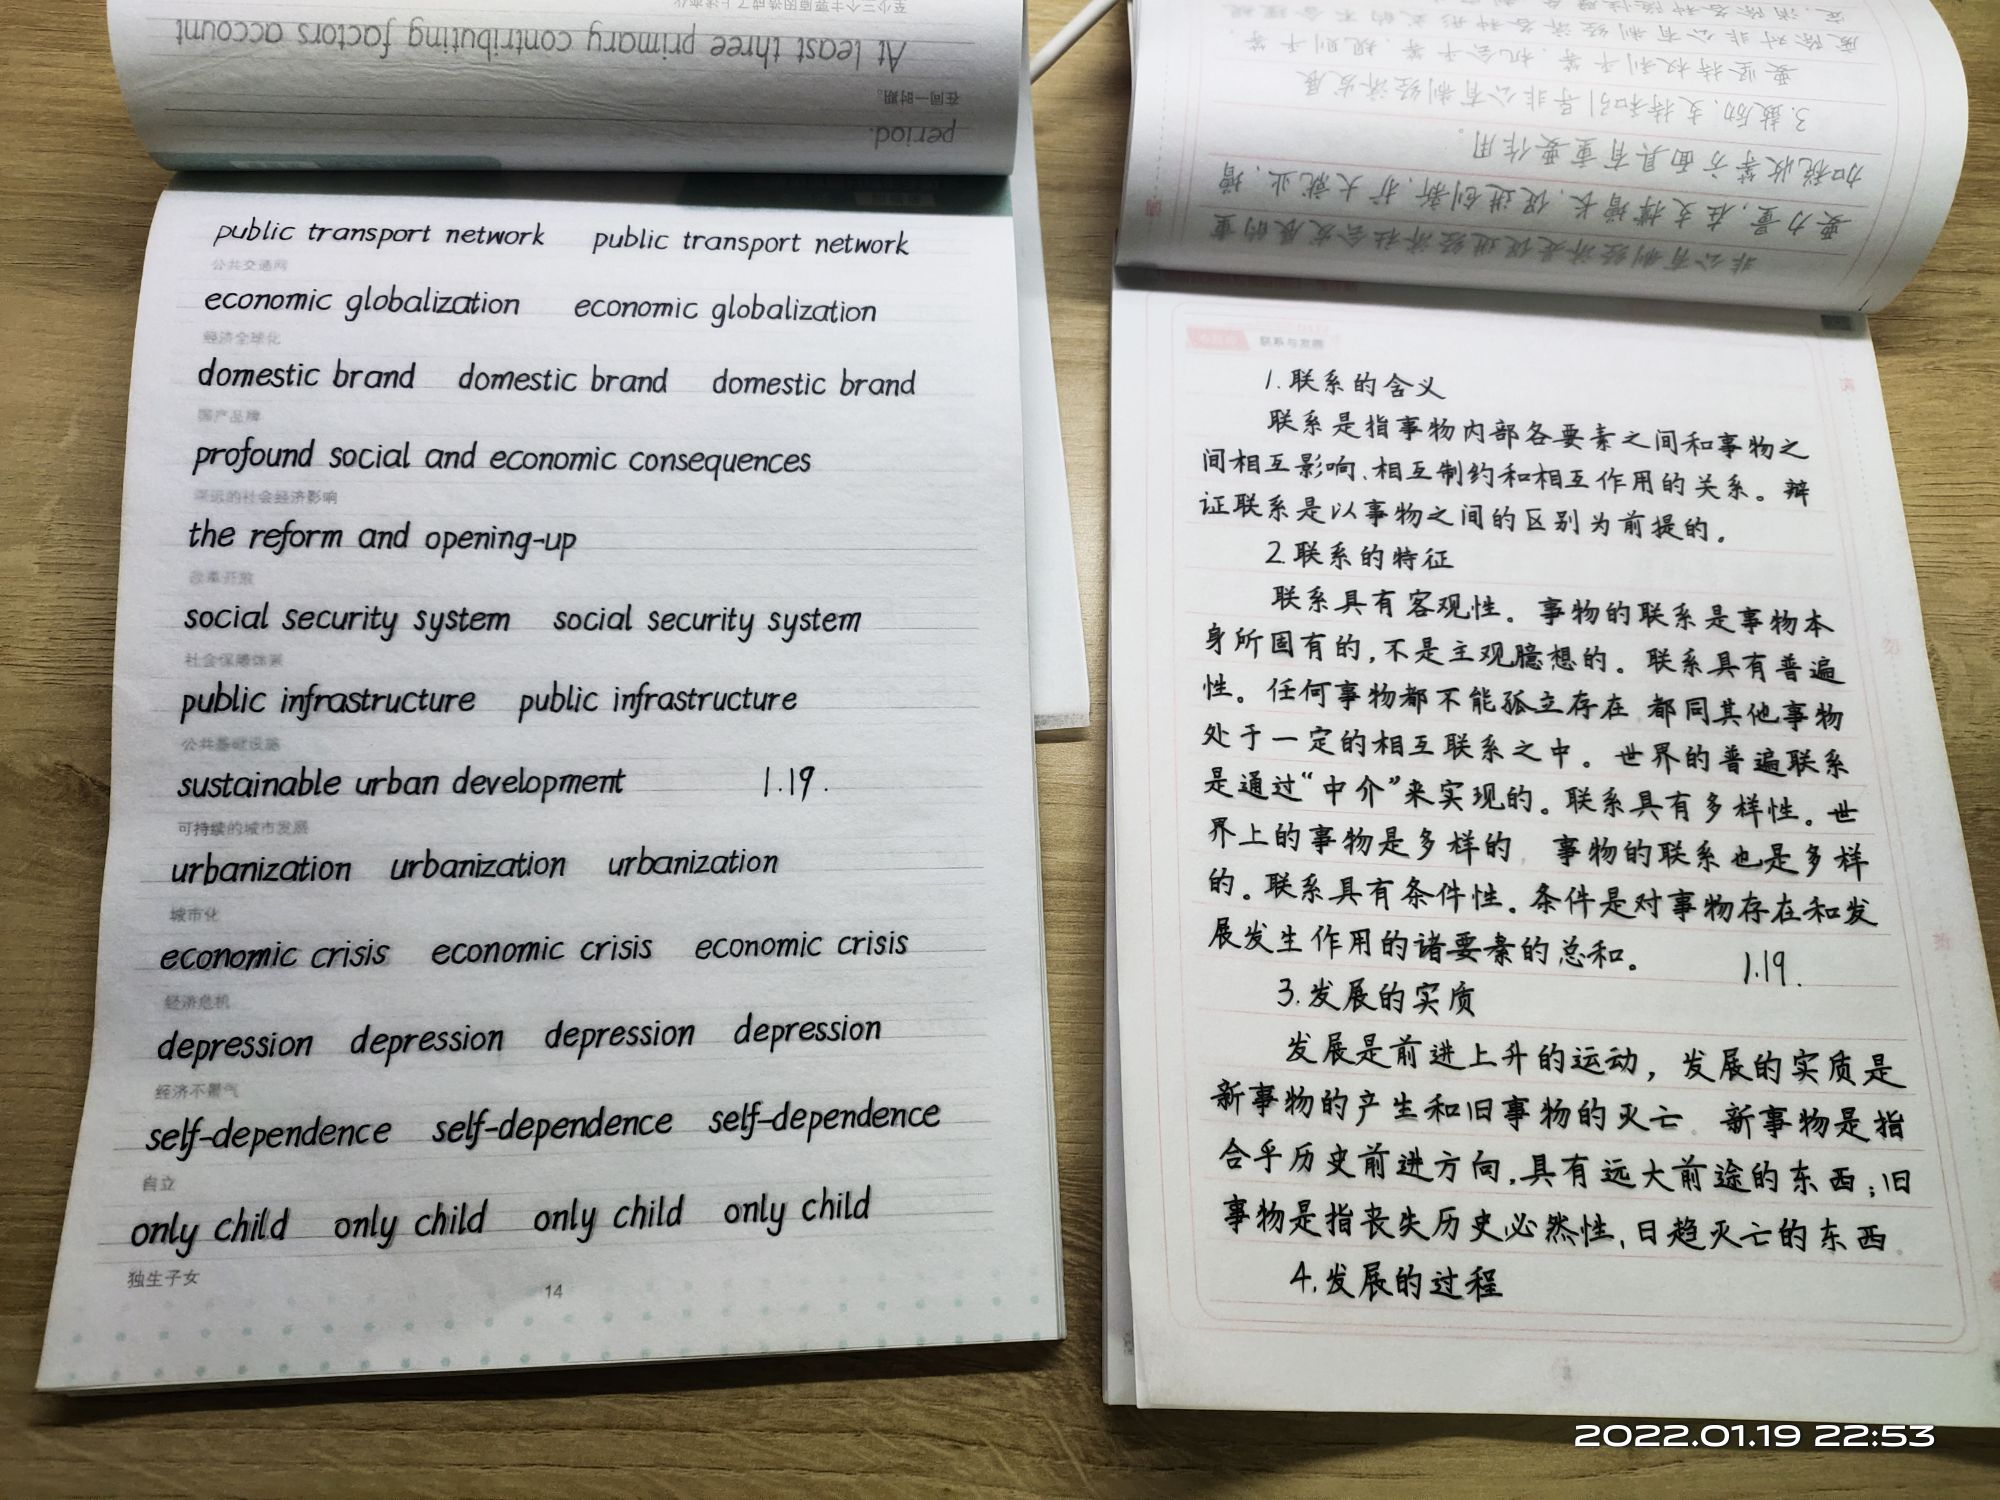 至少三个主要原因造成了上述变化
At least three primary contributing factors account
在同一时期。
period.
public transport network public transport network
公共交通网
economic globalization economic globalization
经济全球化
domestic brand domestic brand domestic brand
国产品牌
profound social and economic consequences
深远的社会经济影响
the reform and opening-up
改革开放
social security system social security system
社会保障体系
public infrastructure public infrastructure
公共基础设施
sustainable urban development 1.19.
可持续的城市发展
urbanization urbanization urbanization
城市化
economic crisis economic crisis economic crisis
经济危机
depression depression depression depression
经济不景气
self-dependence self-dependence self-dependence
自立
only child only child only child only child
独生子女
14
非公有制经济是促进经济社会发展的重
要力量,在支撑增长,促进创新,扩大就业,增
加税收等方面具有重要作用。
3.鼓励、支持和引导非公有制经济发展
要坚持权利平等、机会平等、规则平等,
废除对非公有制经济各种形式的不合理规
联系与发展
1.联系的含义
联系是指事物内部各要素之间和事物之
间相互影响、相互制约和相互作用的关系。辩
证联系是以事物之间的区别为前提的。
2.联系的特征
联系具有客观性。事物的联系是事物本
身所固有的,不是主观臆想的。联系具有普遍
性。任何事物都不能孤立存在,都同其他事物
处于一定的相互联系之中。世界的普遍联系
是通过“中介”来实现的。联系具有多样性。世
界上的事物是多样的,事物的联系也是多样
的。联系具有条件性。条件是对事物存在和发
展发生作用的诸要素的总和。 1.19.
3.发展的实质
发展是前进上升的运动,发展的实质是
新事物的产生和旧事物的灭亡。新事物是指
合乎历史前进方向,具有远大前途的东西;旧
事物是指丧失历史必然性,日趋灭亡的东西。
4.发展的过程
2022.01.19 22:53